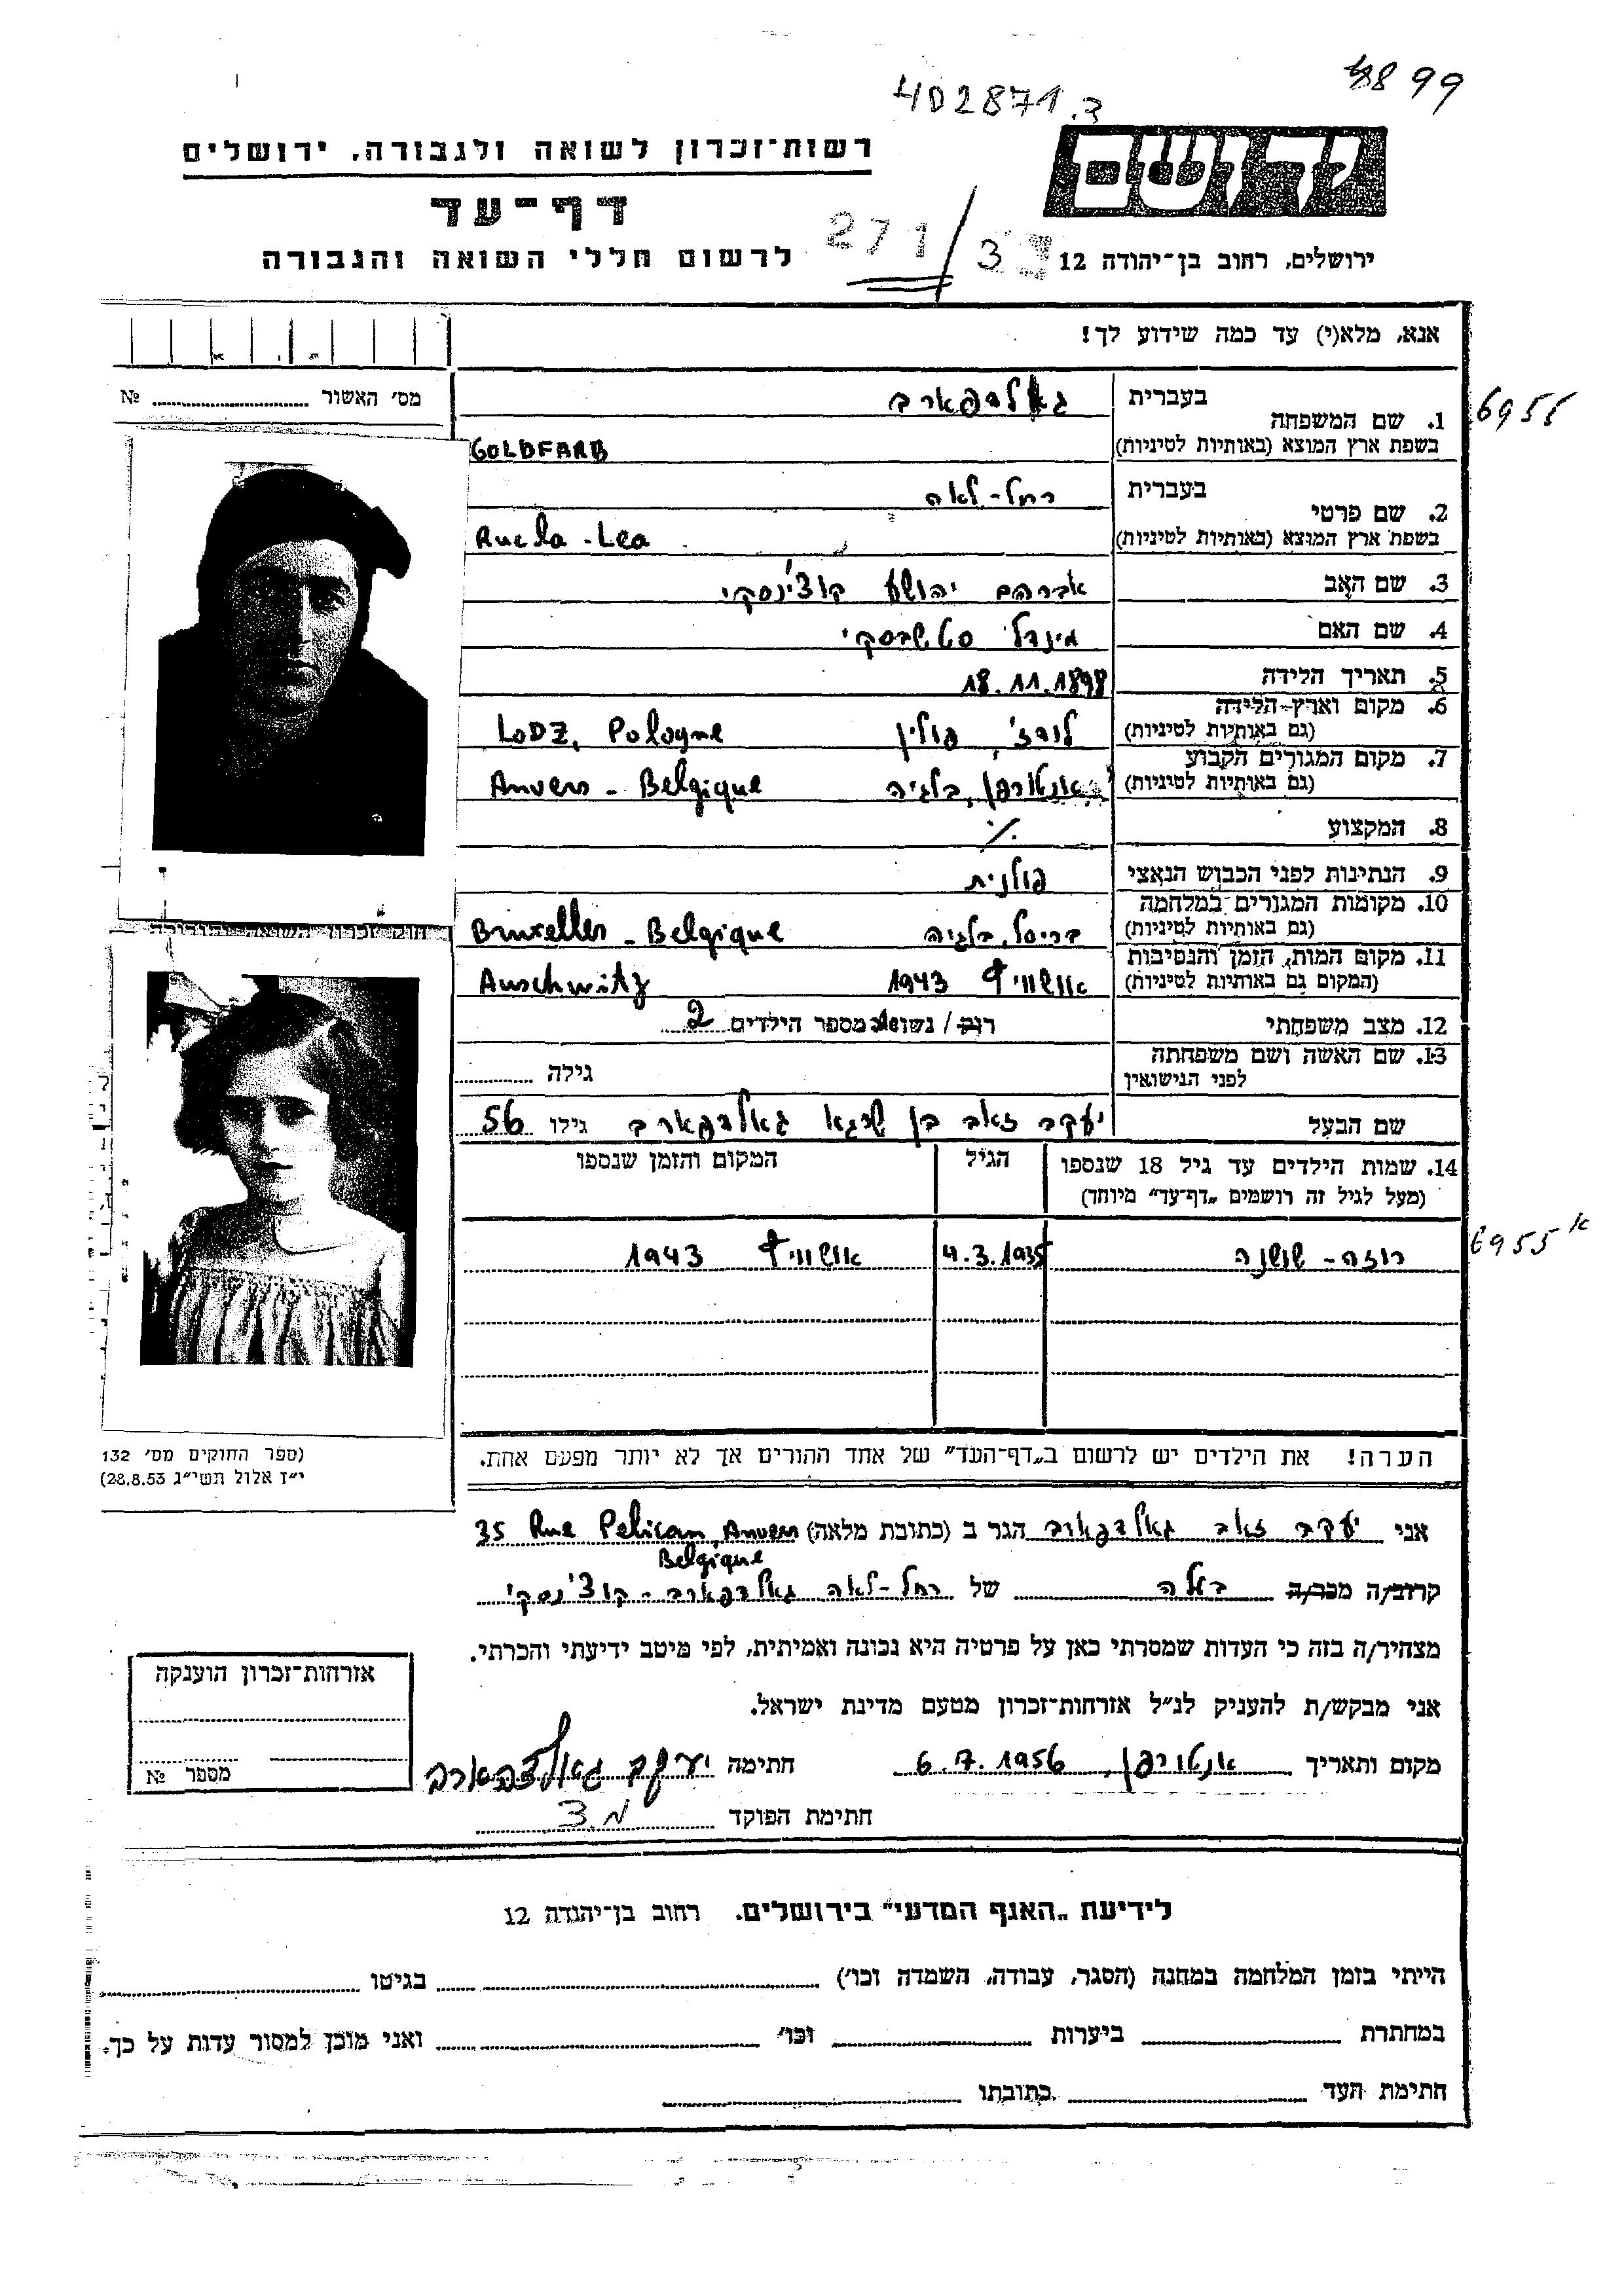 4899
402871.3
יד ושם
רשות־זכרון לשואה ולגבורה, ירושלים
דף־עד
לרשום חללי השואה והגבורה
271/3
ירושלים, רחוב בן־יהודה 12
אנא, מלא(י) עד כמה שידוע לך!
מס׳ האשור № 
1. שם המשפחה
בעברית גאלדפארב
6955
בשפת ארץ המוצא (באותיות לטיניות) GOLDFARB
2. שם פרטי
בעברית רחל-לאה
בשפת ארץ המוצא (באותיות לטיניות) Ruchla-Lea
3. שם האב אברהם יהושע קוצ'ינסקי
4. שם האם מינדל
5. תאריך הלידה 18.11.1898
6. מקום וארץ־הלידה
(גם באותיות לטיניות) לודז', פולין LODZ, Pologne
7. מקום המגורים הקבוע
(גם באותיות לטיניות) אנטורפן, בלגיה Anvers - Belgique
8. המקצוע ./.
9. הנתינות לפני הכבוש הנאצי פולנית
10. מקומות המגורים במלחמה
(גם באותיות לטיניות) בריסל, בלגיה Bruxelles - Belgique
11. מקום המות, הזמן והנסיבות
(המקום גם באותיות לטיניות) אושוויץ 1943 Auschwitz
12. מצב משפחתי רוק/נשואה מספר הילדים 2
13. שם האשה ושם משפחתה
לפני הנישואין גילה
שם הבעל יעקב זאב בן שרגא גאלדפארב גילו 56
14. שמות הילדים עד גיל 18 שנספו
(מעל לגיל זה רושמים „דף־עד״ מיוחד)
הגיל
המקום והזמן שנספו
רוזה - שושנה 4.3.1935 אושוויץ 1943
6955 א
חוק זכרון השואה והגבורה
(ספר החוקים מס׳ 132
י״ז אלול תשי״ג 28.8.53)
הערה! את הילדים יש לרשום ב„דף־העד״ של אחד ההורים אך לא יותר מפעם אחת.
אני יעקב זאב גאלדפארב הגר ב (כתובת מלאה) 35 Rue Pelican, Anvers
Belgique
קרוב/ה מכר/ה בעלה של רחל-לאה גאלדפארב - קוצ'ינסקי
מצהיר/ה בזה כי העדות שמסרתי כאן על פרטיה היא נכונה ואמיתית, לפי מיטב ידיעתי והכרתי.
אני מבקש/ת להעניק לנ״ל אזרחות־זכרון מטעם מדינת ישראל.
מקום ותאריך אנטורפן, 6.7.1956 חתימה יעקב גאלדפארב
חתימת הפוקד
אזרחות־זכרון הוענקה
מספר №
לידיעת „האגף המדעי״ בירושלים. רחוב בן־יהודה 12
הייתי בזמן המלחמה במחנה (הסגר, עבודה, השמדה וכו׳) בגיטו
במחתרת ביערות וכו׳ ואני מוכן למסור עדות על כך.
חתימת העד כתובתו